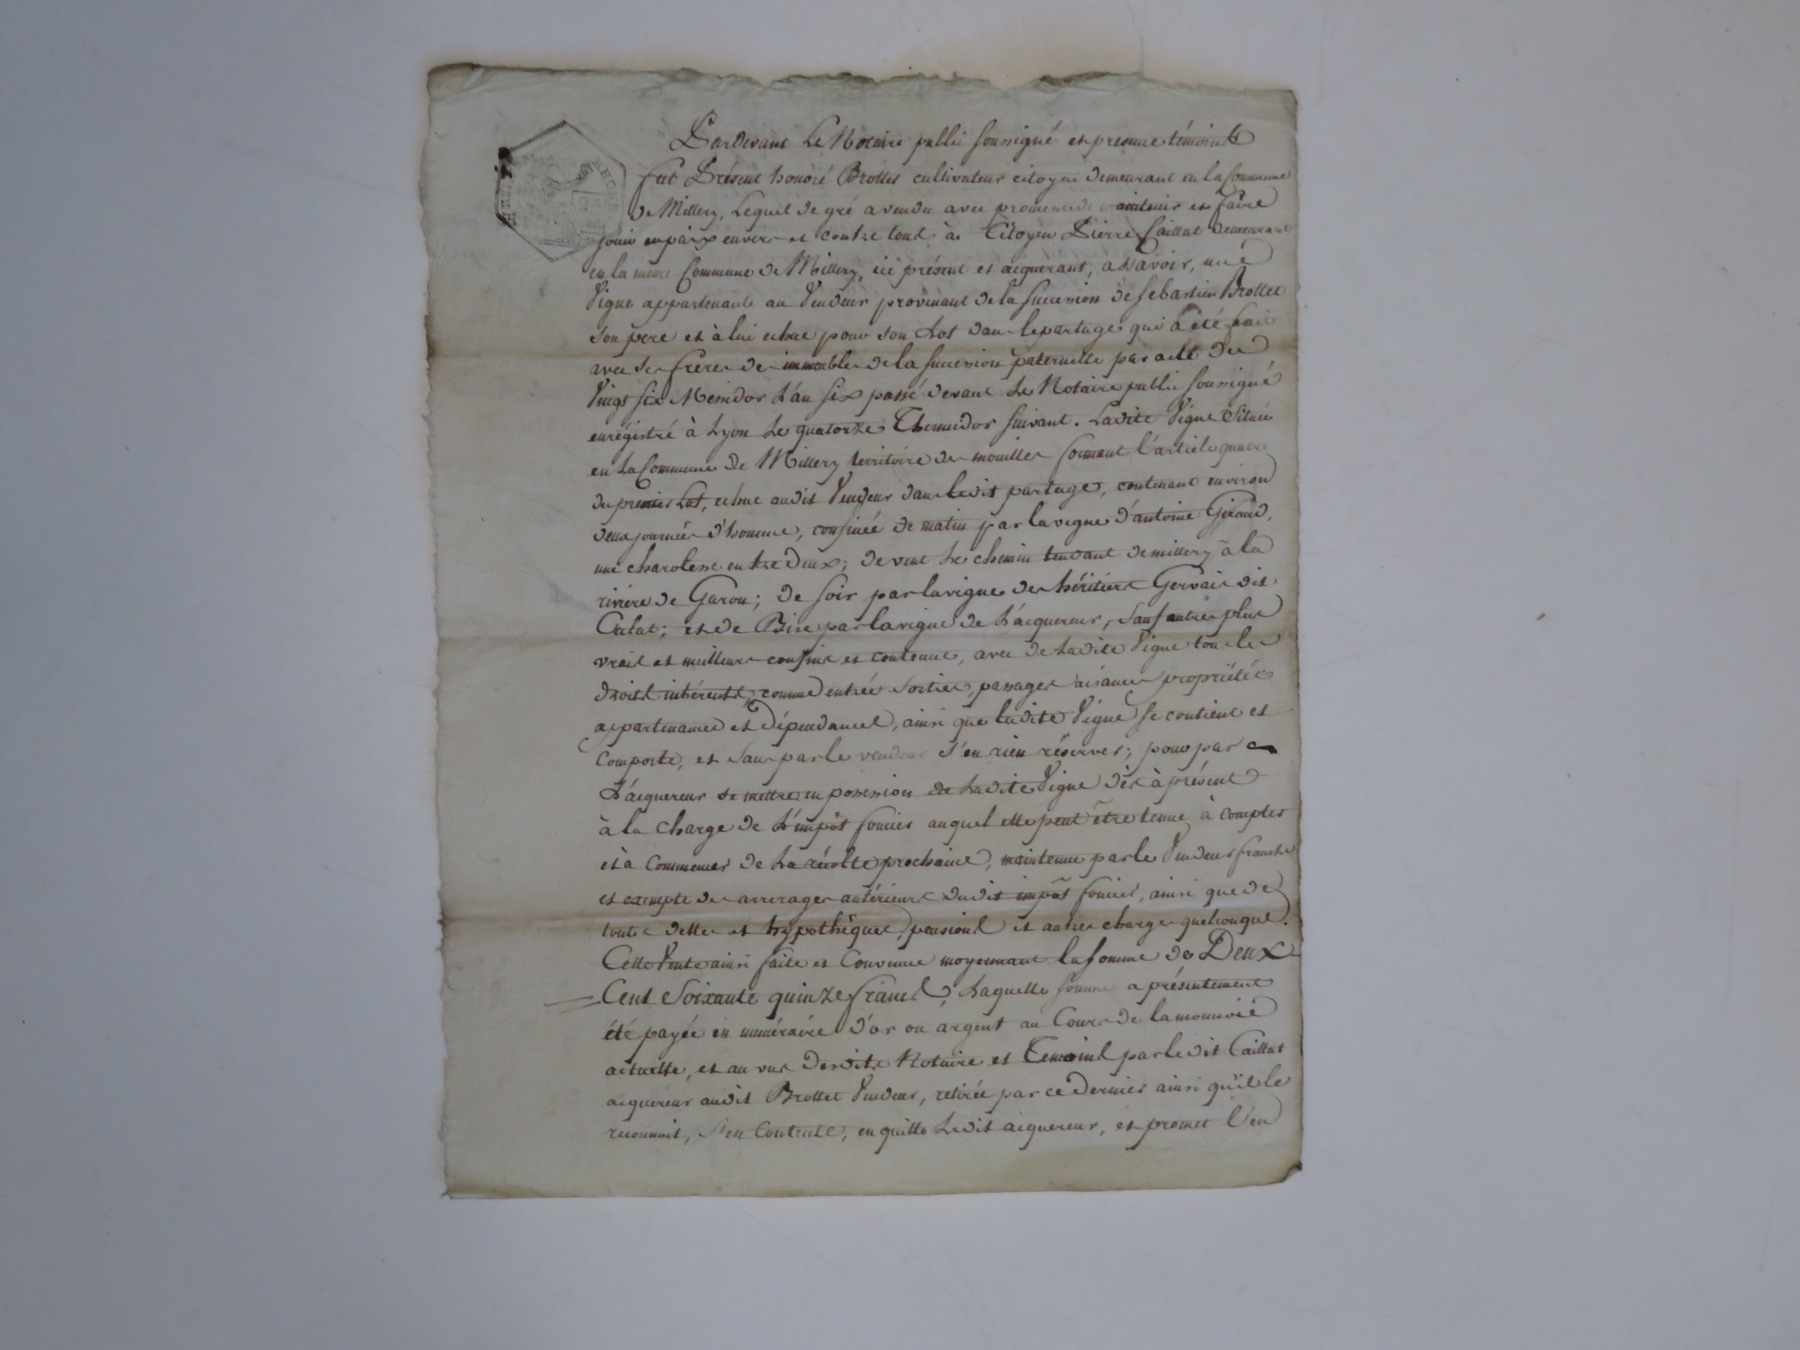 Pardevant Le Notaire public soussigné et presence témoins
fut Présent honoré Brottet cultivateur citoyen demeurant en la Commune
de Millery, Lequel de gré a vendu avec promesse de maintenir et faire
jouir en paix envers et contre tous à Citoyen Pierre Caillat demeurant
en la meme Commune de Millery, ici présent et acquerant, a Savoir, une
Vigne appartenante au Vendeur provenant de la succession de Sebastien Brottet
son pere et à lui echue pour son Lot dans le partage qui a été fait
avec ses freres des immeubles de la succession paternelle par acte du
Vingt six Messidor L'an six passé devant Le Notaire public soussigné
enrégistré à Lyon Le quatorze Thermidor suivant. Ladite Vigne Située
en La Commune de Millery territoire des mouilles formant l'article quatre
du premier Lot, echue audit Vendeur dans ledit partage, contenant environ
deux journées d'homme, confinée de matin par la vigne d'antoine Giraud,
une charolesse entre deux; de vent Le chemin tendant de millery à la
riviere de Garon; de soir par la vigne des héritiers Gervais dit
; et de Bise par la vigne de L'acquereur, sauf autres plus
vrais et meilleurs confins et contenue, avec de Ladite Vigne tous les
droits inhérents, comme entrées sorties, passages aisances propriétés
appartenances et dépendances, ainsi que ladite Vigne se contient et
comporte, et sans par le vendeur s'en rien réserver; pour par
L'acquereur se mettre en possession de Ladite Vigne dès à présent
à la charge de L'impôt foncier auquel elle peut être tenue à compter
et à commencer de La récolte prochaine, maintenue par le Vendeur franche
et exempte des arrerages antérieurs dudit impôt foncier, ainsi que de
toutes dettes et hypothèques, pensions et autres charges quelconques.
Cette Vente ainsi faite et Convenue moyennant la somme de Deux
Cent Soixante quinze francs, Laquelle somme a présentement
été payée en numéraire d'or ou argent au Cours de la monnoie
actuelle, et au vu desdits Notaire et Temoins par ledit Caillat
acquereur audit Brottet Vendeur, retirée par ce dernier ainsi qu'il le
reconnoit, s'en contente, en quitte Ledit acquereur, et promet l'en